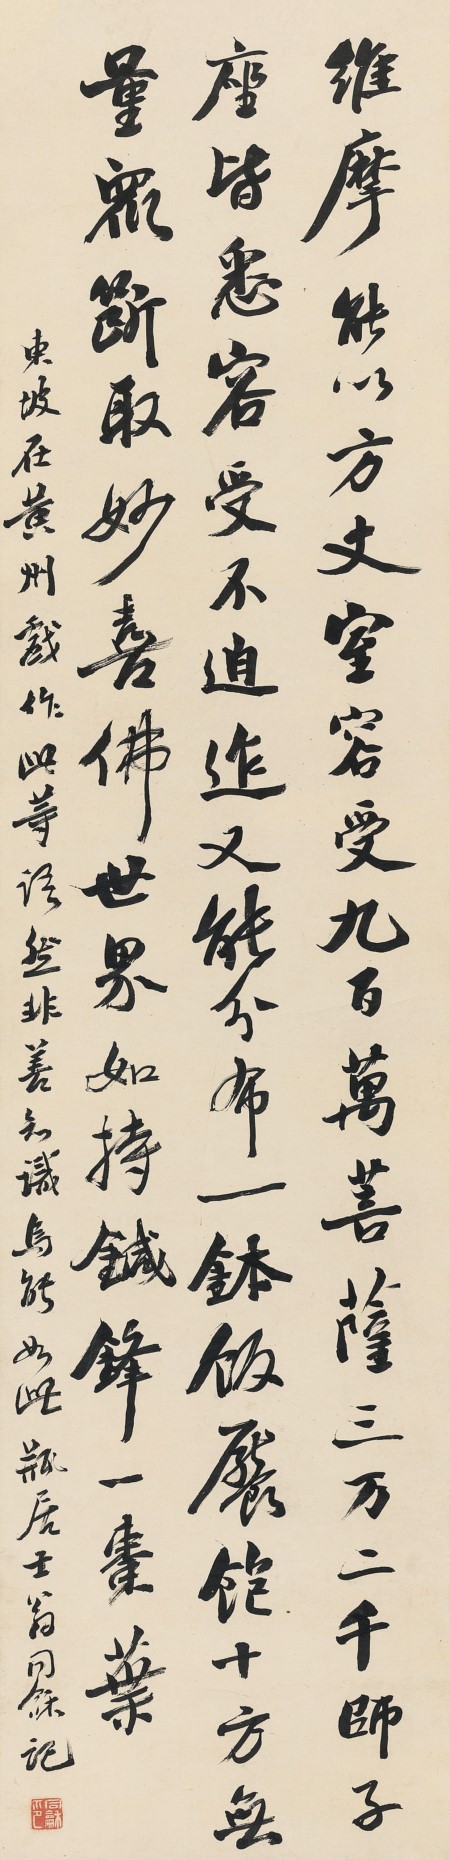 維摩能以方丈室容受九百萬菩薩三万二千師子
座皆悉容受不迫迮又能分布一鉢飯饜飽十方無
量眾斷取妙喜佛世界如持鍼鋒一棗葉
東坡在黃州戲作此等語然非善知識烏能如此 瓶居士翁同龢記